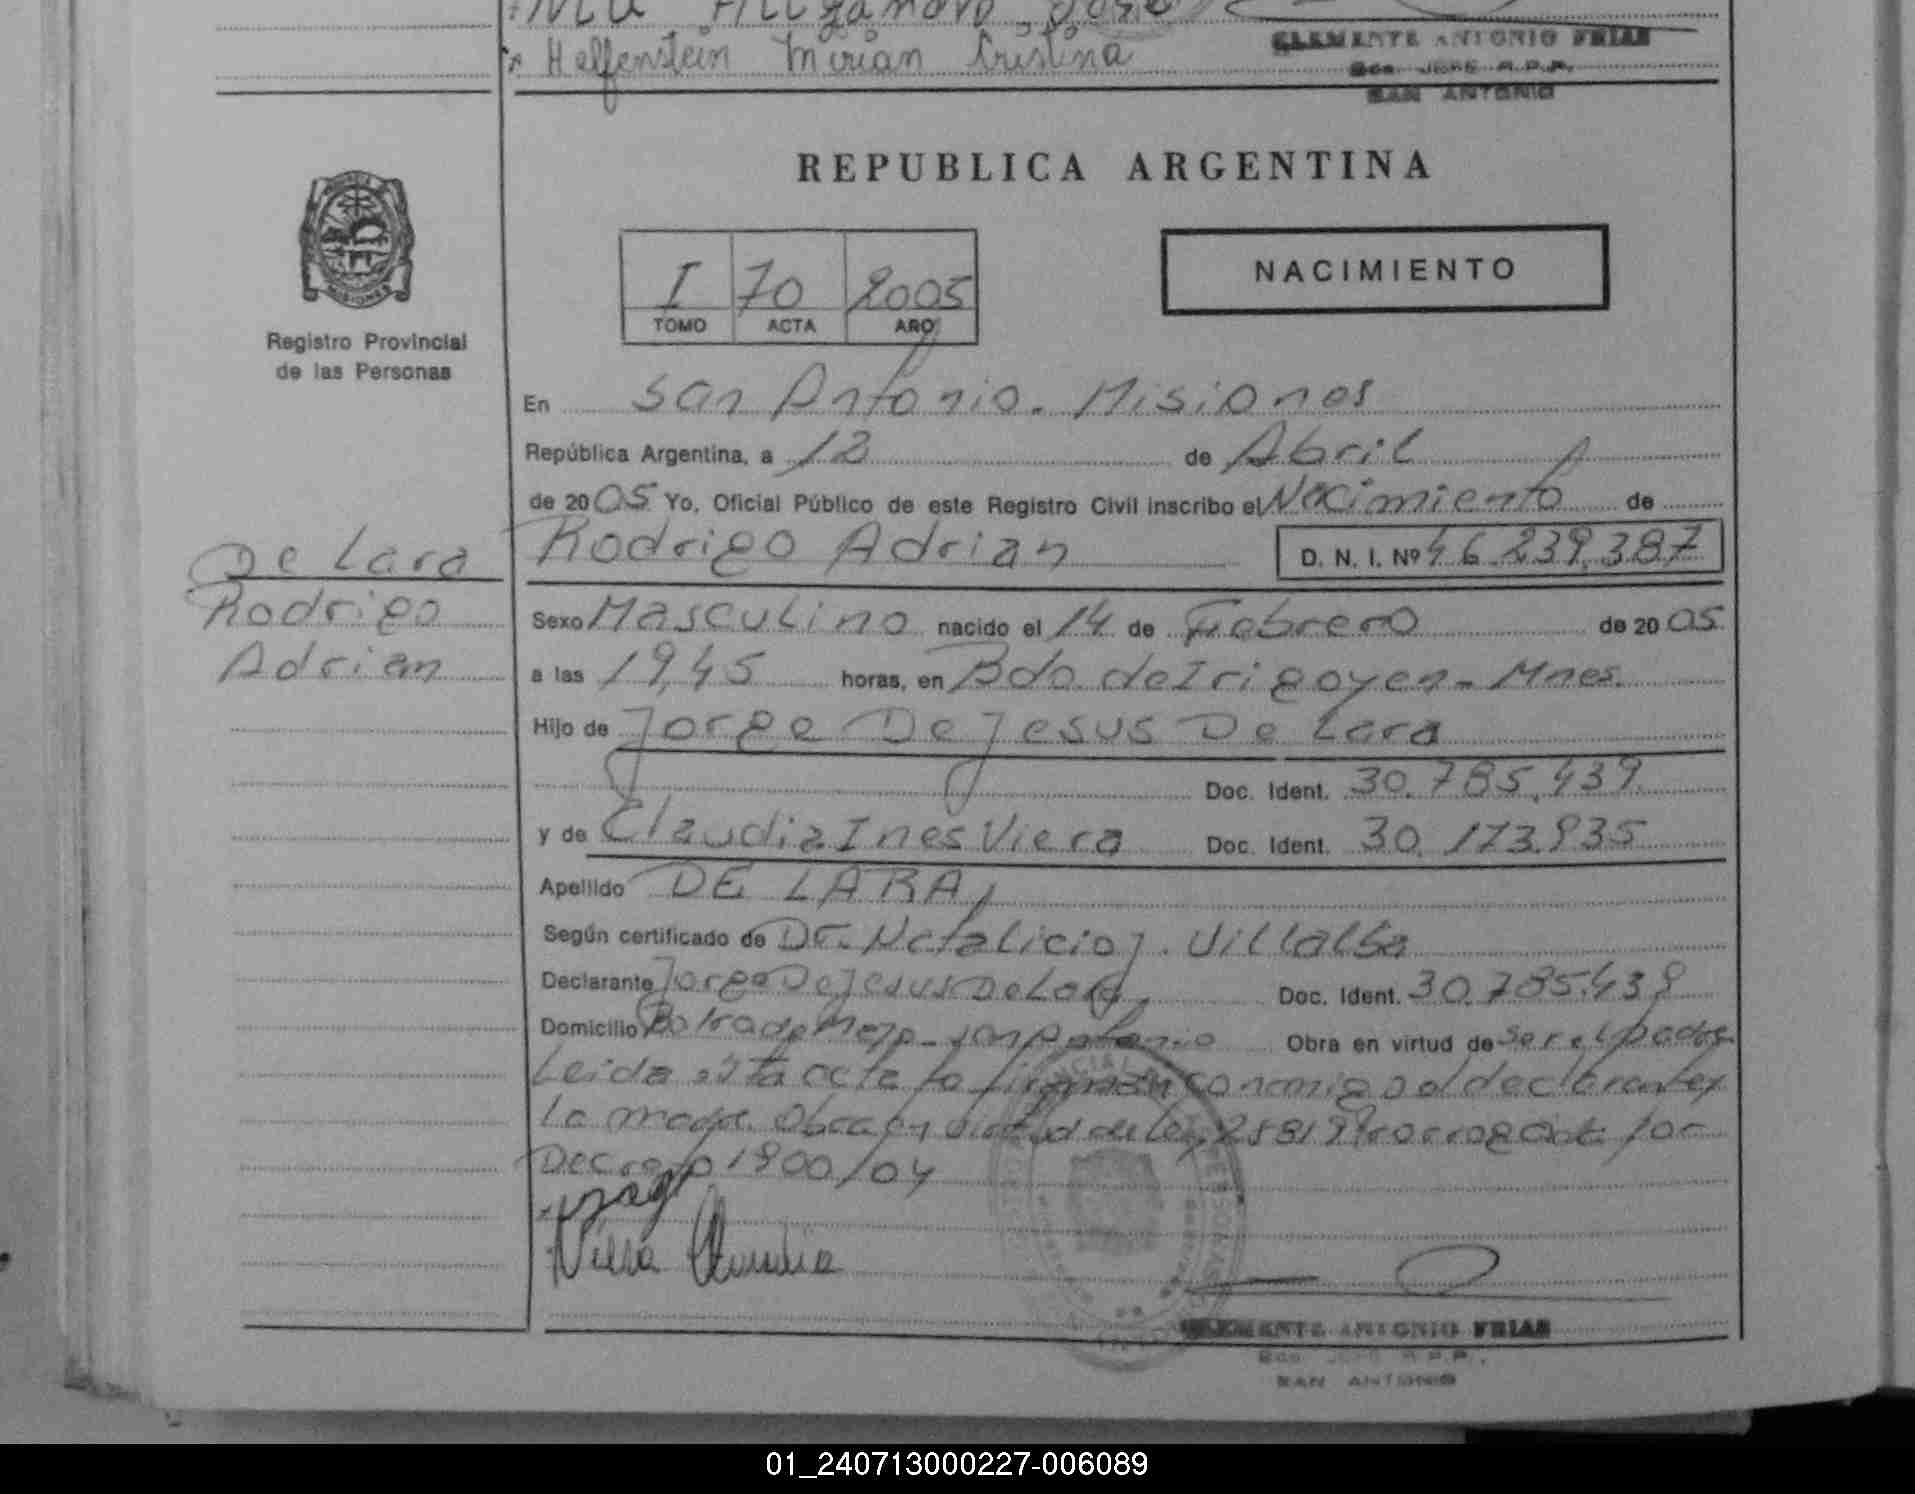 Helfenstein Mirian Cristina
CLEMENTE ANTONIO FRIAS
SAN ANTONIO
REPUBLICA ARGENTINA
I 70 2005
TOMO ACTA AÑO
NACIMIENTO
MISIONES
Registro Provincial
de las Personas
En San Antonio - Misiones
República Argentina, a 12 de Abril
de 2005 Yo, Oficial Público de este Registro Civil inscribo el Nacimiento de
De Lara
Rodrigo Adrian D. N. I. Nº 46.239.387
Rodrigo
Adrian
Sexo Masculino nacido el 14 de Febrero de 2005
a las 19,45 horas, en Bdo. de Irigoyen - Mnes.
Hijo de Jorge De Jesus De Lara
Doc. Ident. 30.785.439
y de Claudia Ines Viera Doc. Ident. 30.173.935
Apellido DE LARA
Según certificado de Dr. Natalicio J. Villalba
Declarante Jorge De Jesus De Lara Doc. Ident. 30.785.439
Domicilio San Antonio Obra en virtud de ser el padre
Leida esta acta la firman conmigo el declarante y
La madre. Obra en virtud de Ley 25819 Prorrogada por
Decreto 1900/04
Viera Claudia
CLEMENTE ANTONIO FRIAS
SAN ANTONIO
01_240713000227-006089